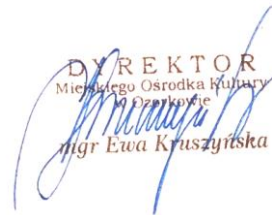 DYREKTOR
Miejskiego Ośrodka Kultury
w Ozorkowie
mgr Ewa Kruszyńska